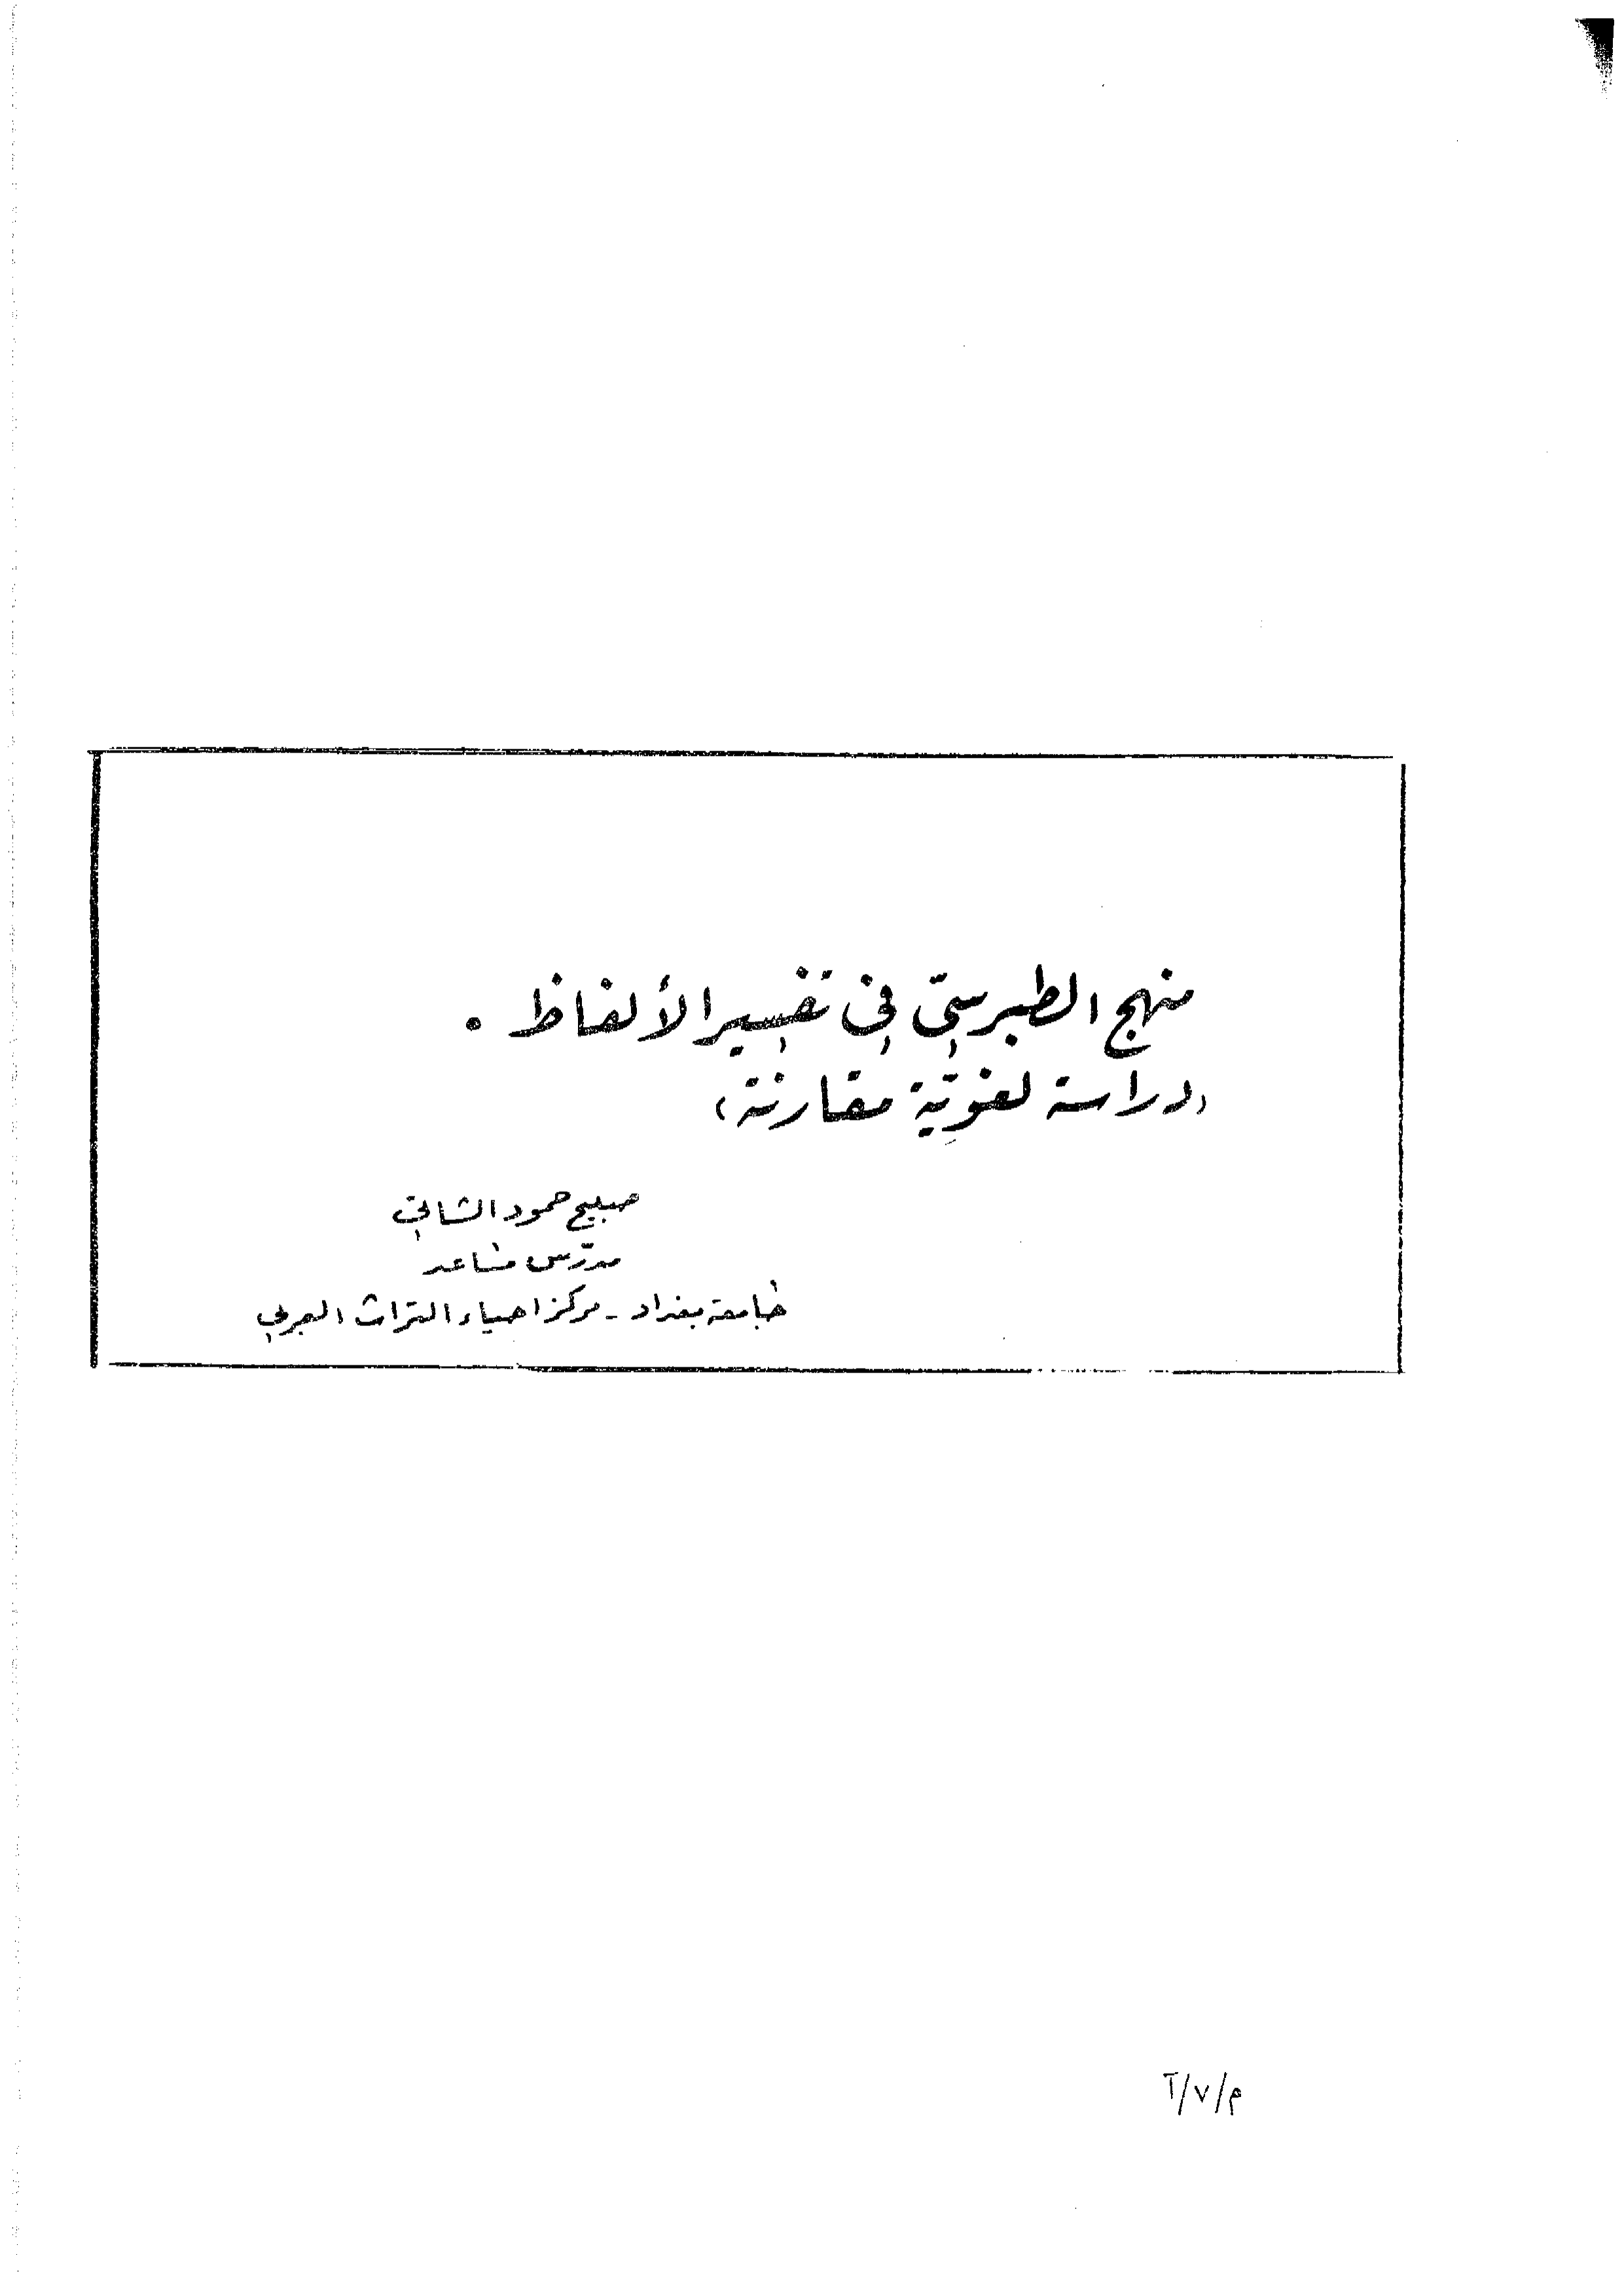 منهج الطبرسيّ في تفسير الألفاظ .
(دراسة لغويّة مقارنة)
صبيح حمود الشاتي
مدرّس مساعد
جامعة بغداد - مركز احياء التراث العربي
م/٧/آ